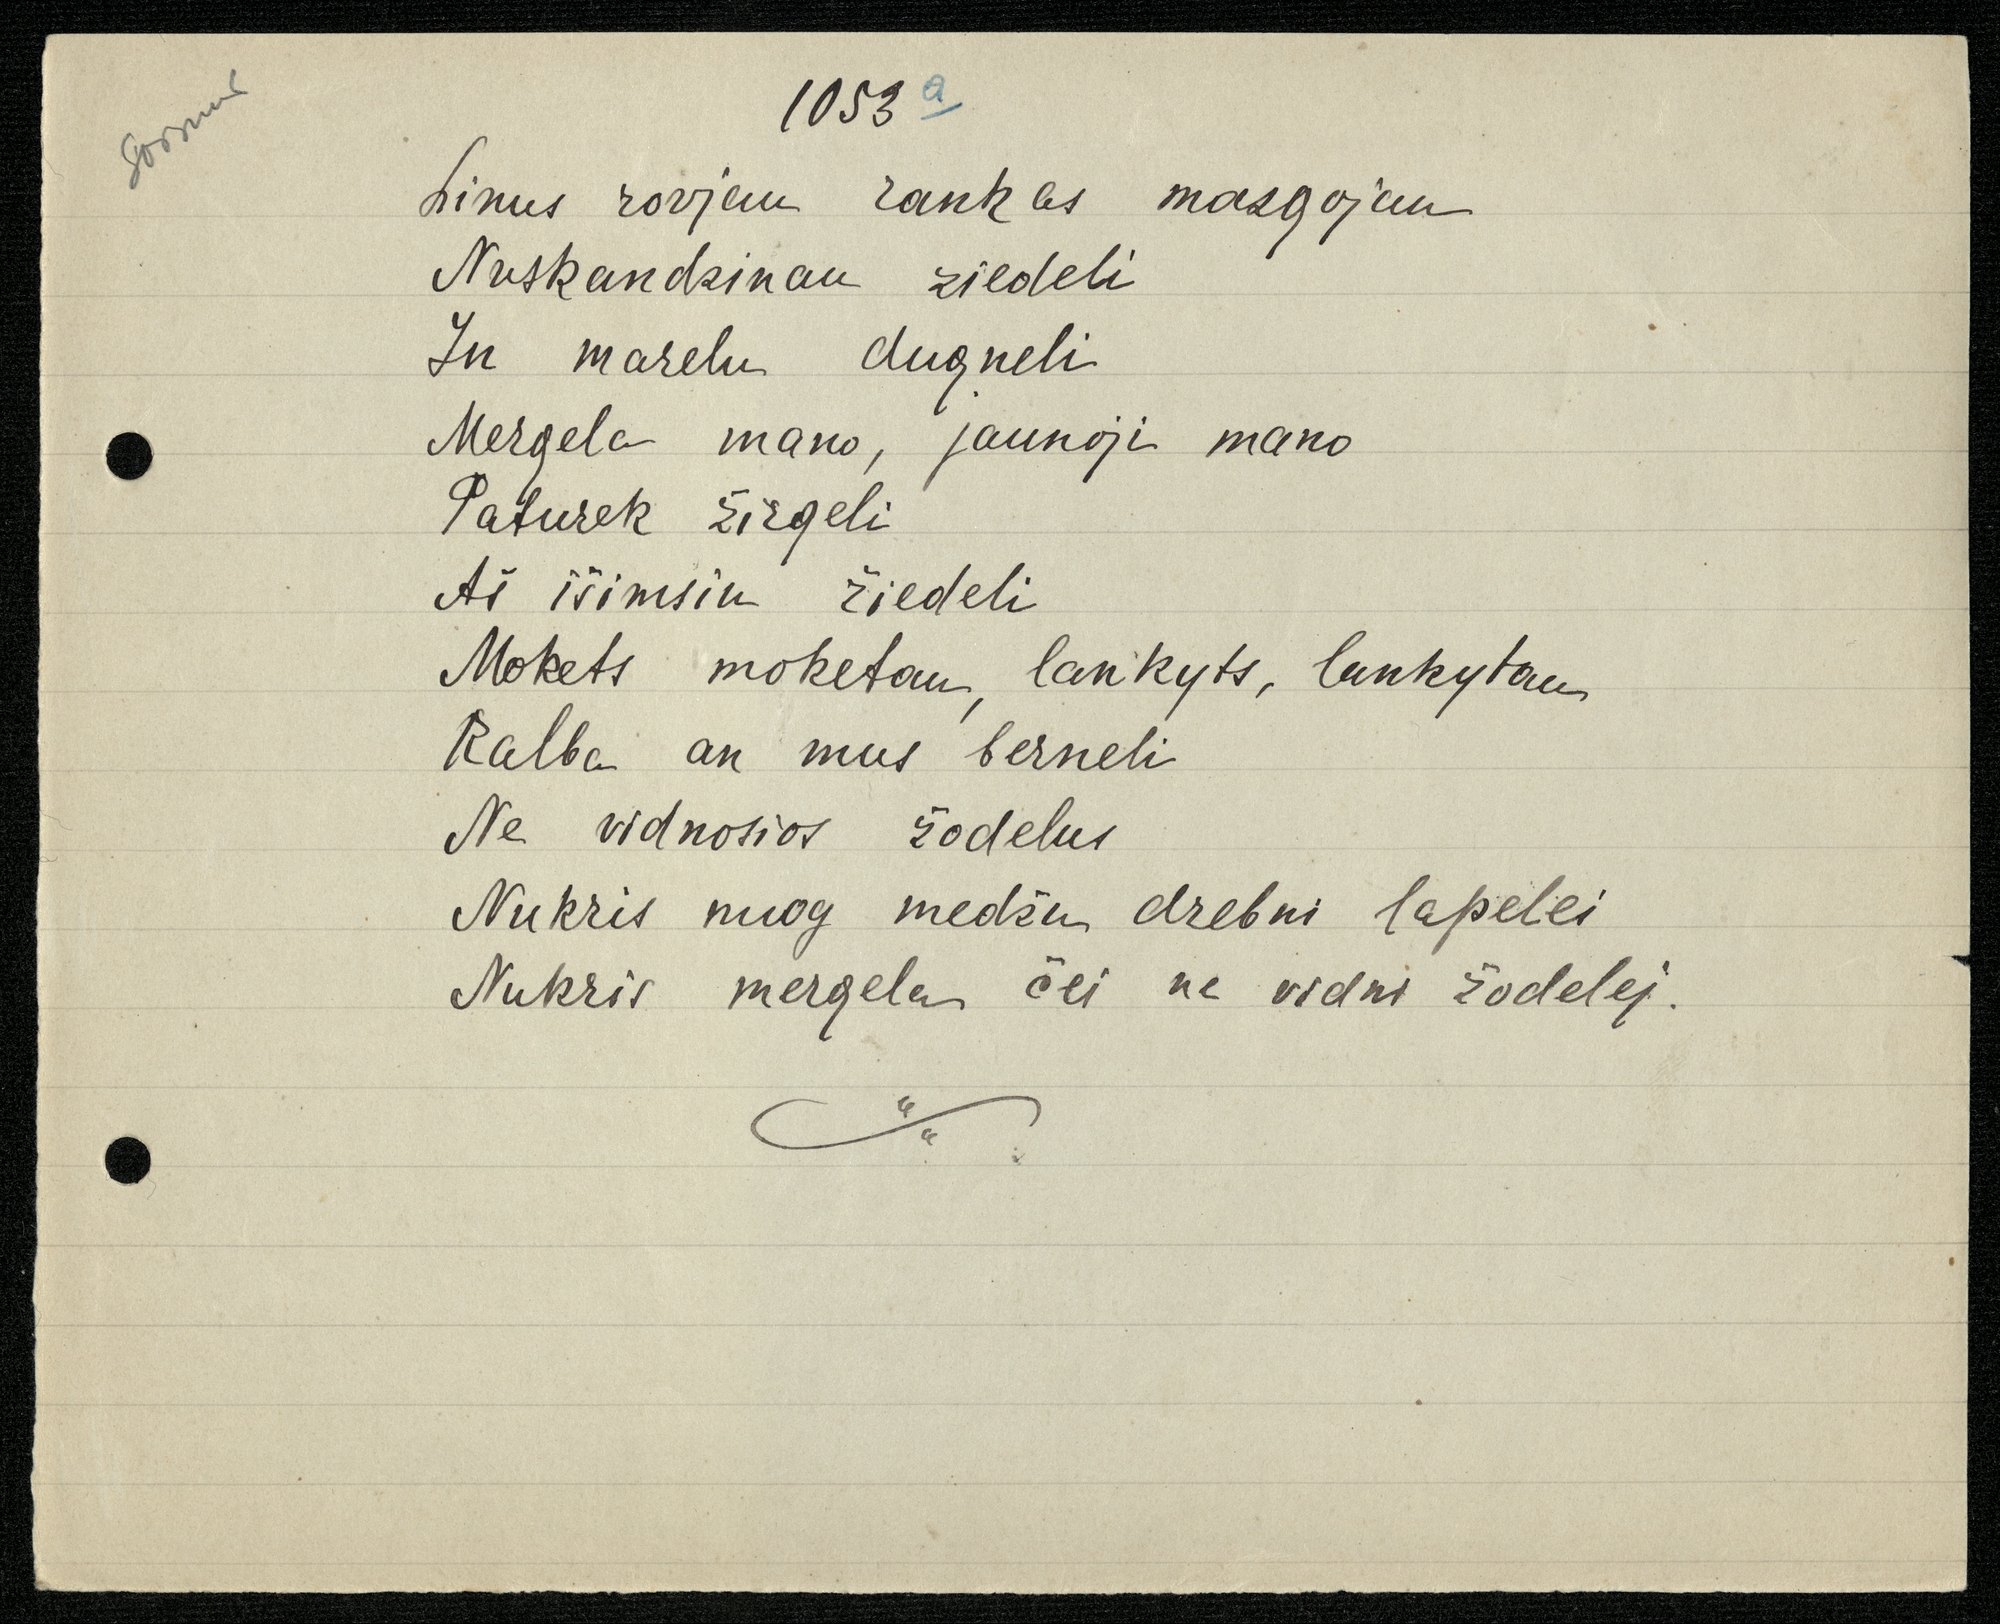 1053 a
Linus rovjau rankas mazgojau
Nuskandzinau ziedeli
In marelu dugneli
Mergela mano, jaunoji mano
Paturek žirgeli
Aš išimsiu žiedeli
Mokets moketau, lankyts, lankytau
Kalba an mus berneli
Ne vidnosios žodelus
Nukris nuog medžu drebni lapelei
Nukris mergela čei ne vidni žodelej.